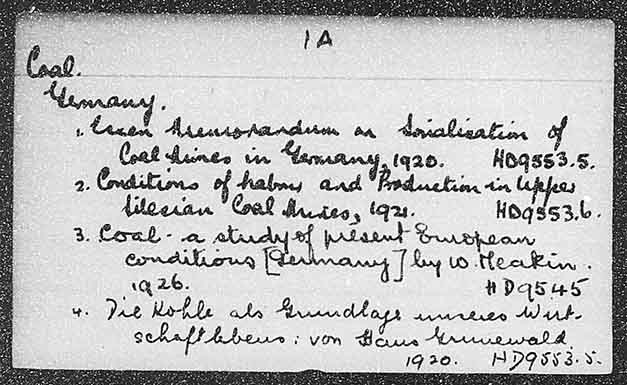 1A
Coal.
Germany.
1. Essen Memorandum on Socialisation of
Coal Mines in Germany, 1920. HD9553.5.
2. Conditions of Labour and Production in Upper
Silesian Coal Mines, 1921. HD9553.6.
3. Coal - a study of present European
conditions [Germany] by W. Meakin.
1926. HD9545
4. Die Kohle als Grundlage unseres Wirt-
schaftlebens: von Hans Grunewald
1920. HD9553.5.